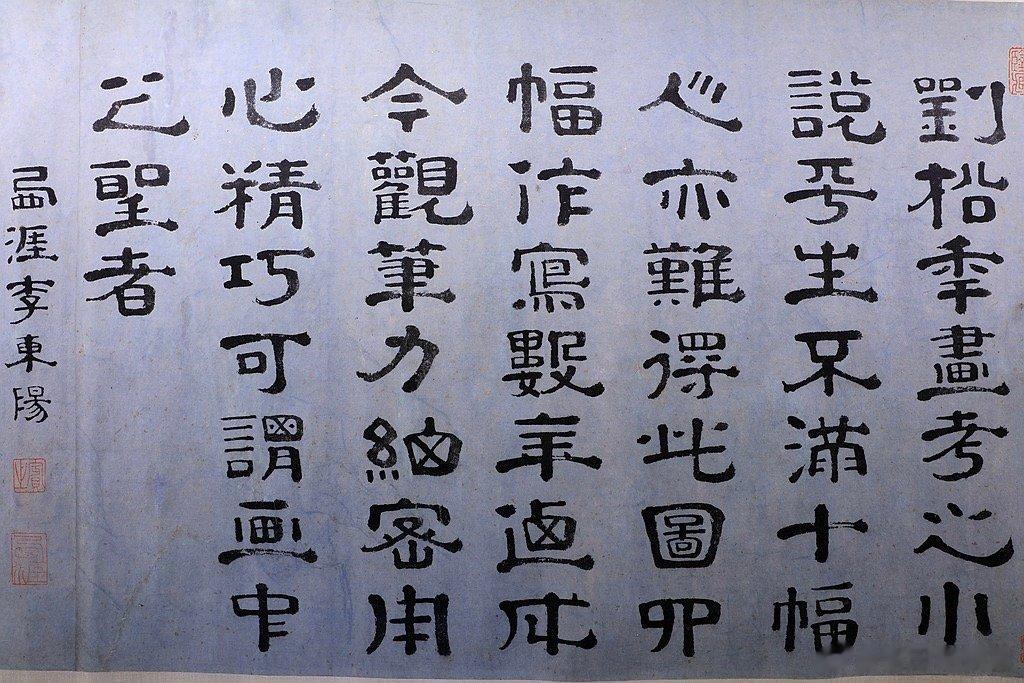 劉松年畫考之小
說平生不滿十幅
亦難得此圖四
幅作寫數年迺成
今觀筆力細密用
心精巧可謂画中
之聖者
西涯李東陽